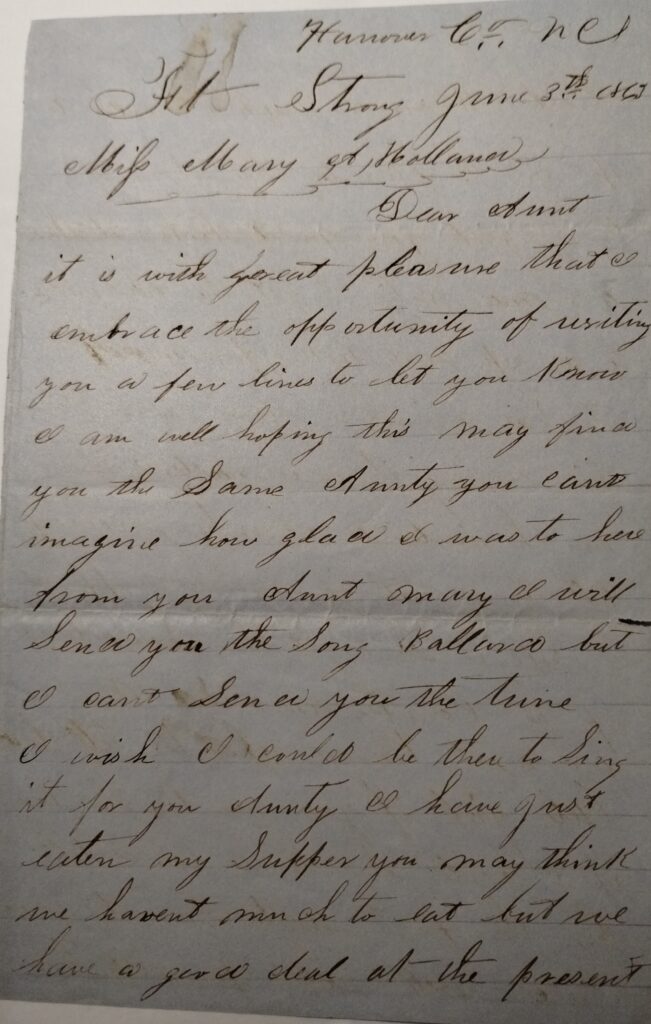 Hanover Co. NC
Ft Strong June 3th 1863
Miss Mary A, Holland
Dear Aunt
it is with great pleasure that I
embrace the opportunity of writing
you a few lines to let you Know
I am well hoping this may find
you the Same Aunty you cant
imagine how glad I was to here
from you Aunt mary I will
Send you the Song Ballard but
I cant Send you the tune
I wish I could be then to Sing
it for you Aunty I have just
eaten my Supper you may think
we havent much to eat but we
have a good deal at the present